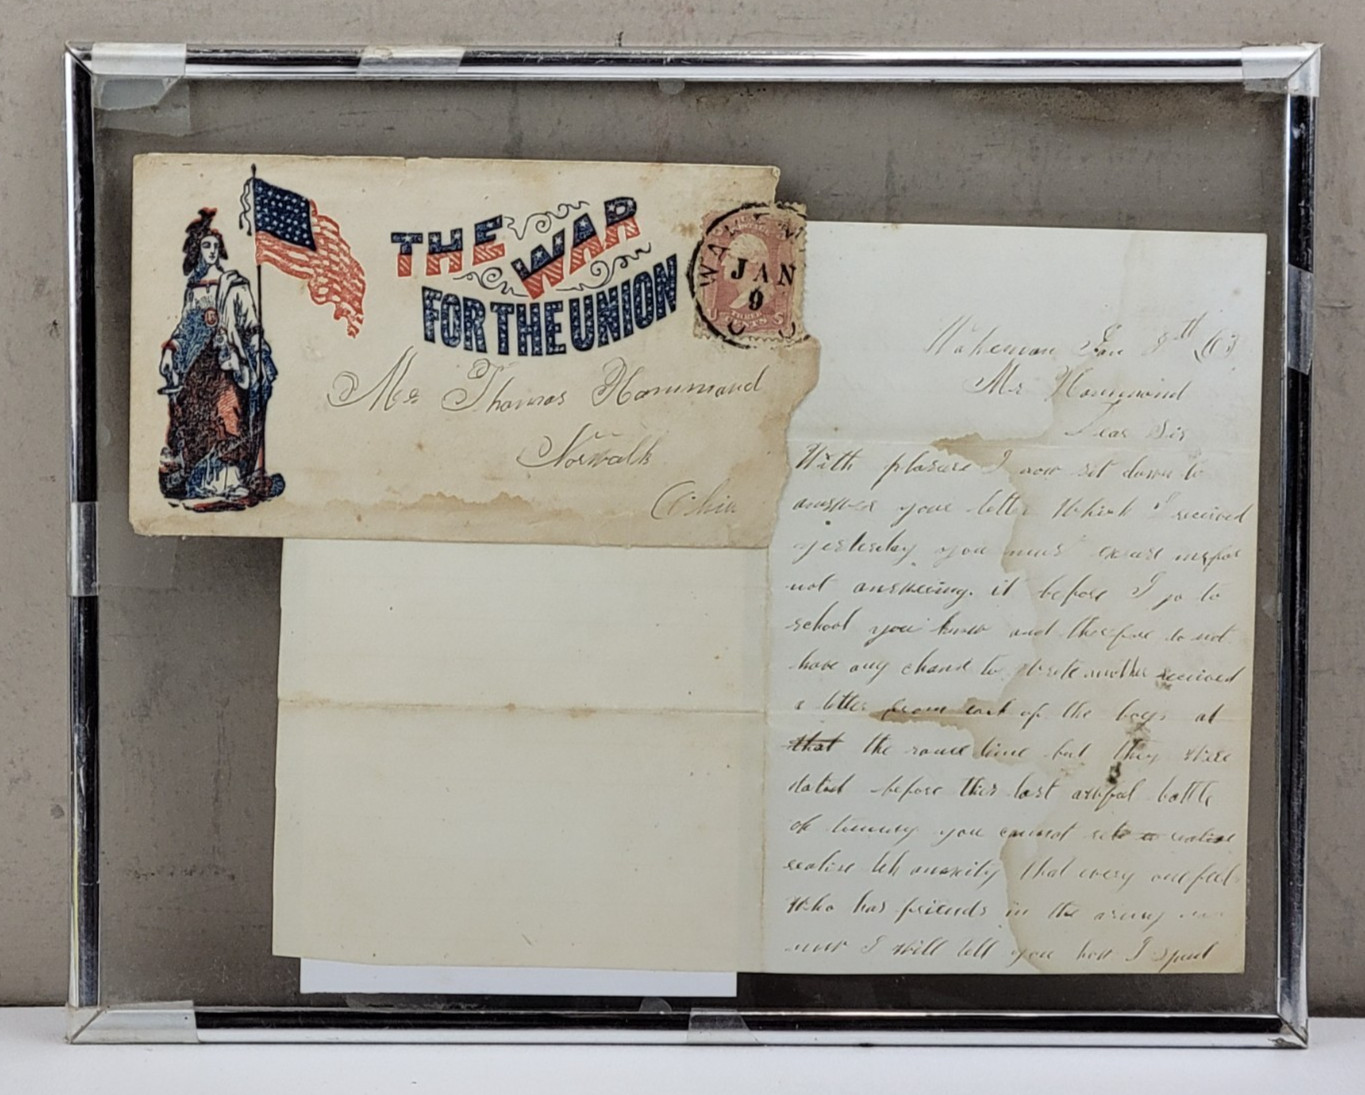 THE WAR
FOR THE UNION
WAKEMAN
JAN
9
O
THREE
CENTS
Mr Thomas Hammond
Norwalk
Ohio
Wakeman Jan 8th 63
Mr Hammond
Dear Sir
With plasure I now set down to
answer your letter Which I received
yesterday you must excuse me for
not answering it before I go to
school you know and therefore do not
have any chance to write mother received
a letter from each of the boys at
that the same time but they were
dated before this last awfful battle
you cannot
realise anxity that every one feels
Who has friends in the army
now I will tell you how I spent